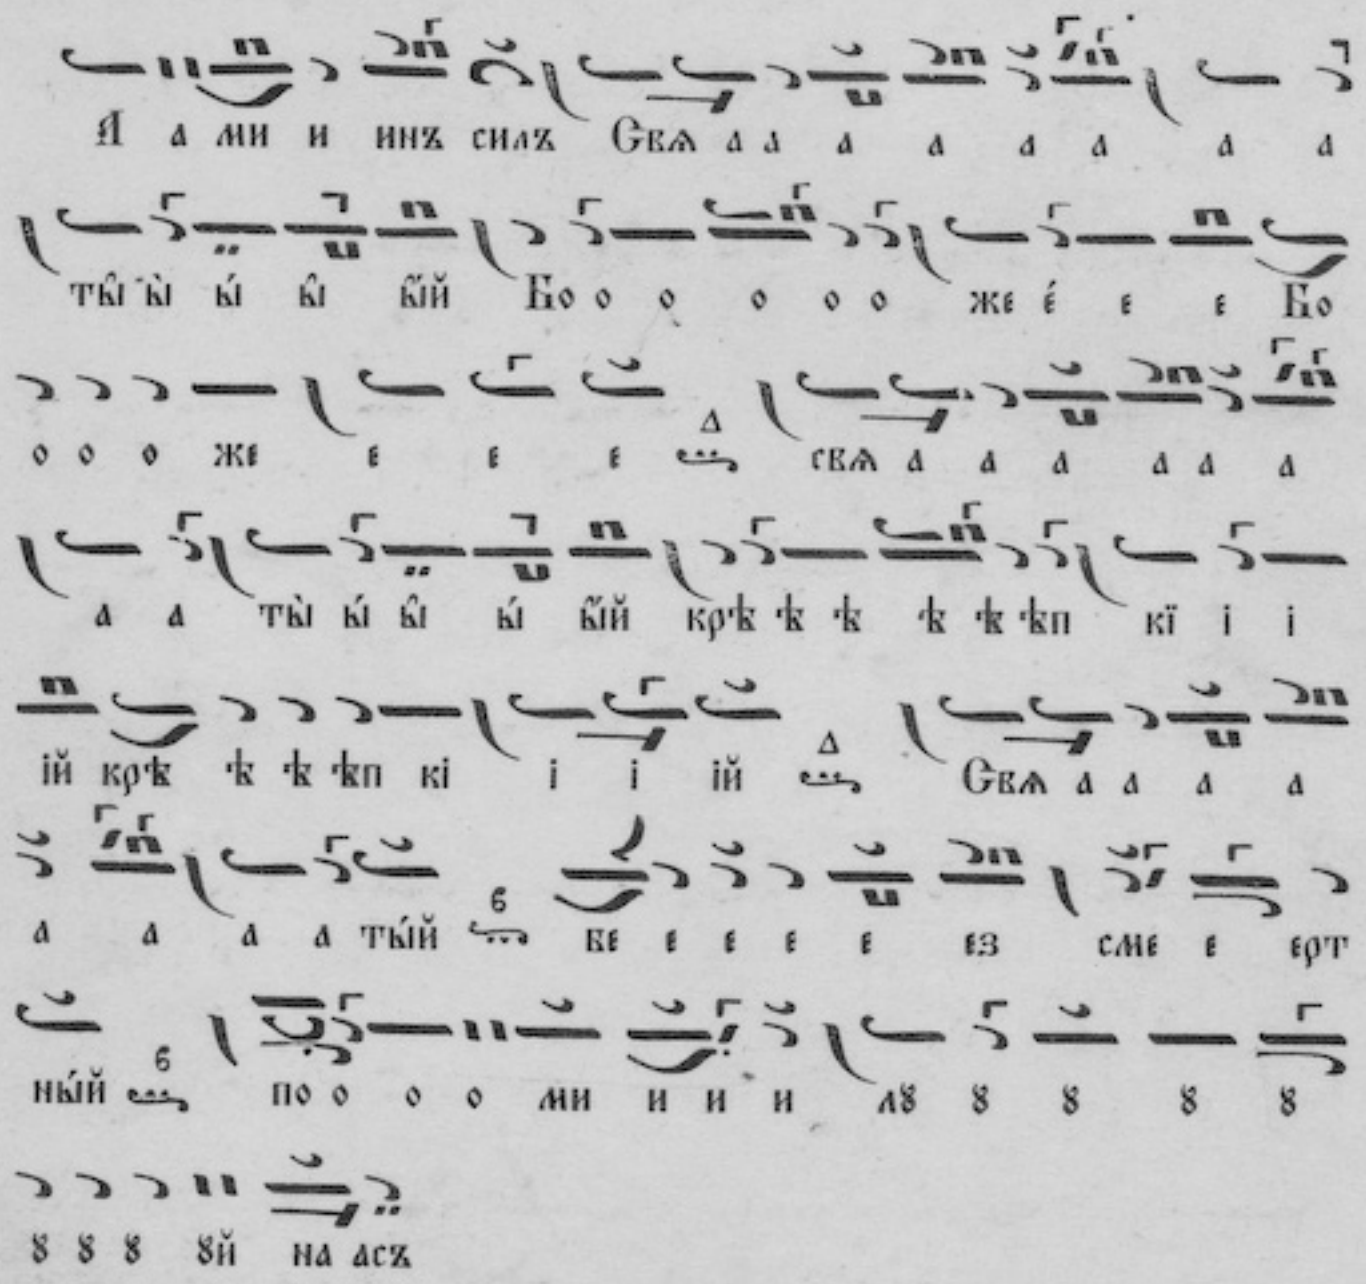 А҆ а ми и инъ силъ Свѧ а а а а а а а а
ты̑ ы̀ ы́ ы̑ ы̑й Бо о о о о о же е́ е е Бо
о о о же е е е Δ свѧ а а а а а а
а а ты̀ ы́ ы̑ ы́ ы̑й крѣ ѣ ѣ ѣ ѣ ѣп кї і і
ій крѣ ѣ ѣ ѣп кі і і ій Δ Свѧ а а а а
а а а а ты́й б бе е е е е ез сме е ерт
ны́й б по о о о ми и и и лꙋ ꙋ ꙋ ꙋ ꙋ
ꙋ ꙋ ꙋ ꙋй на асъ